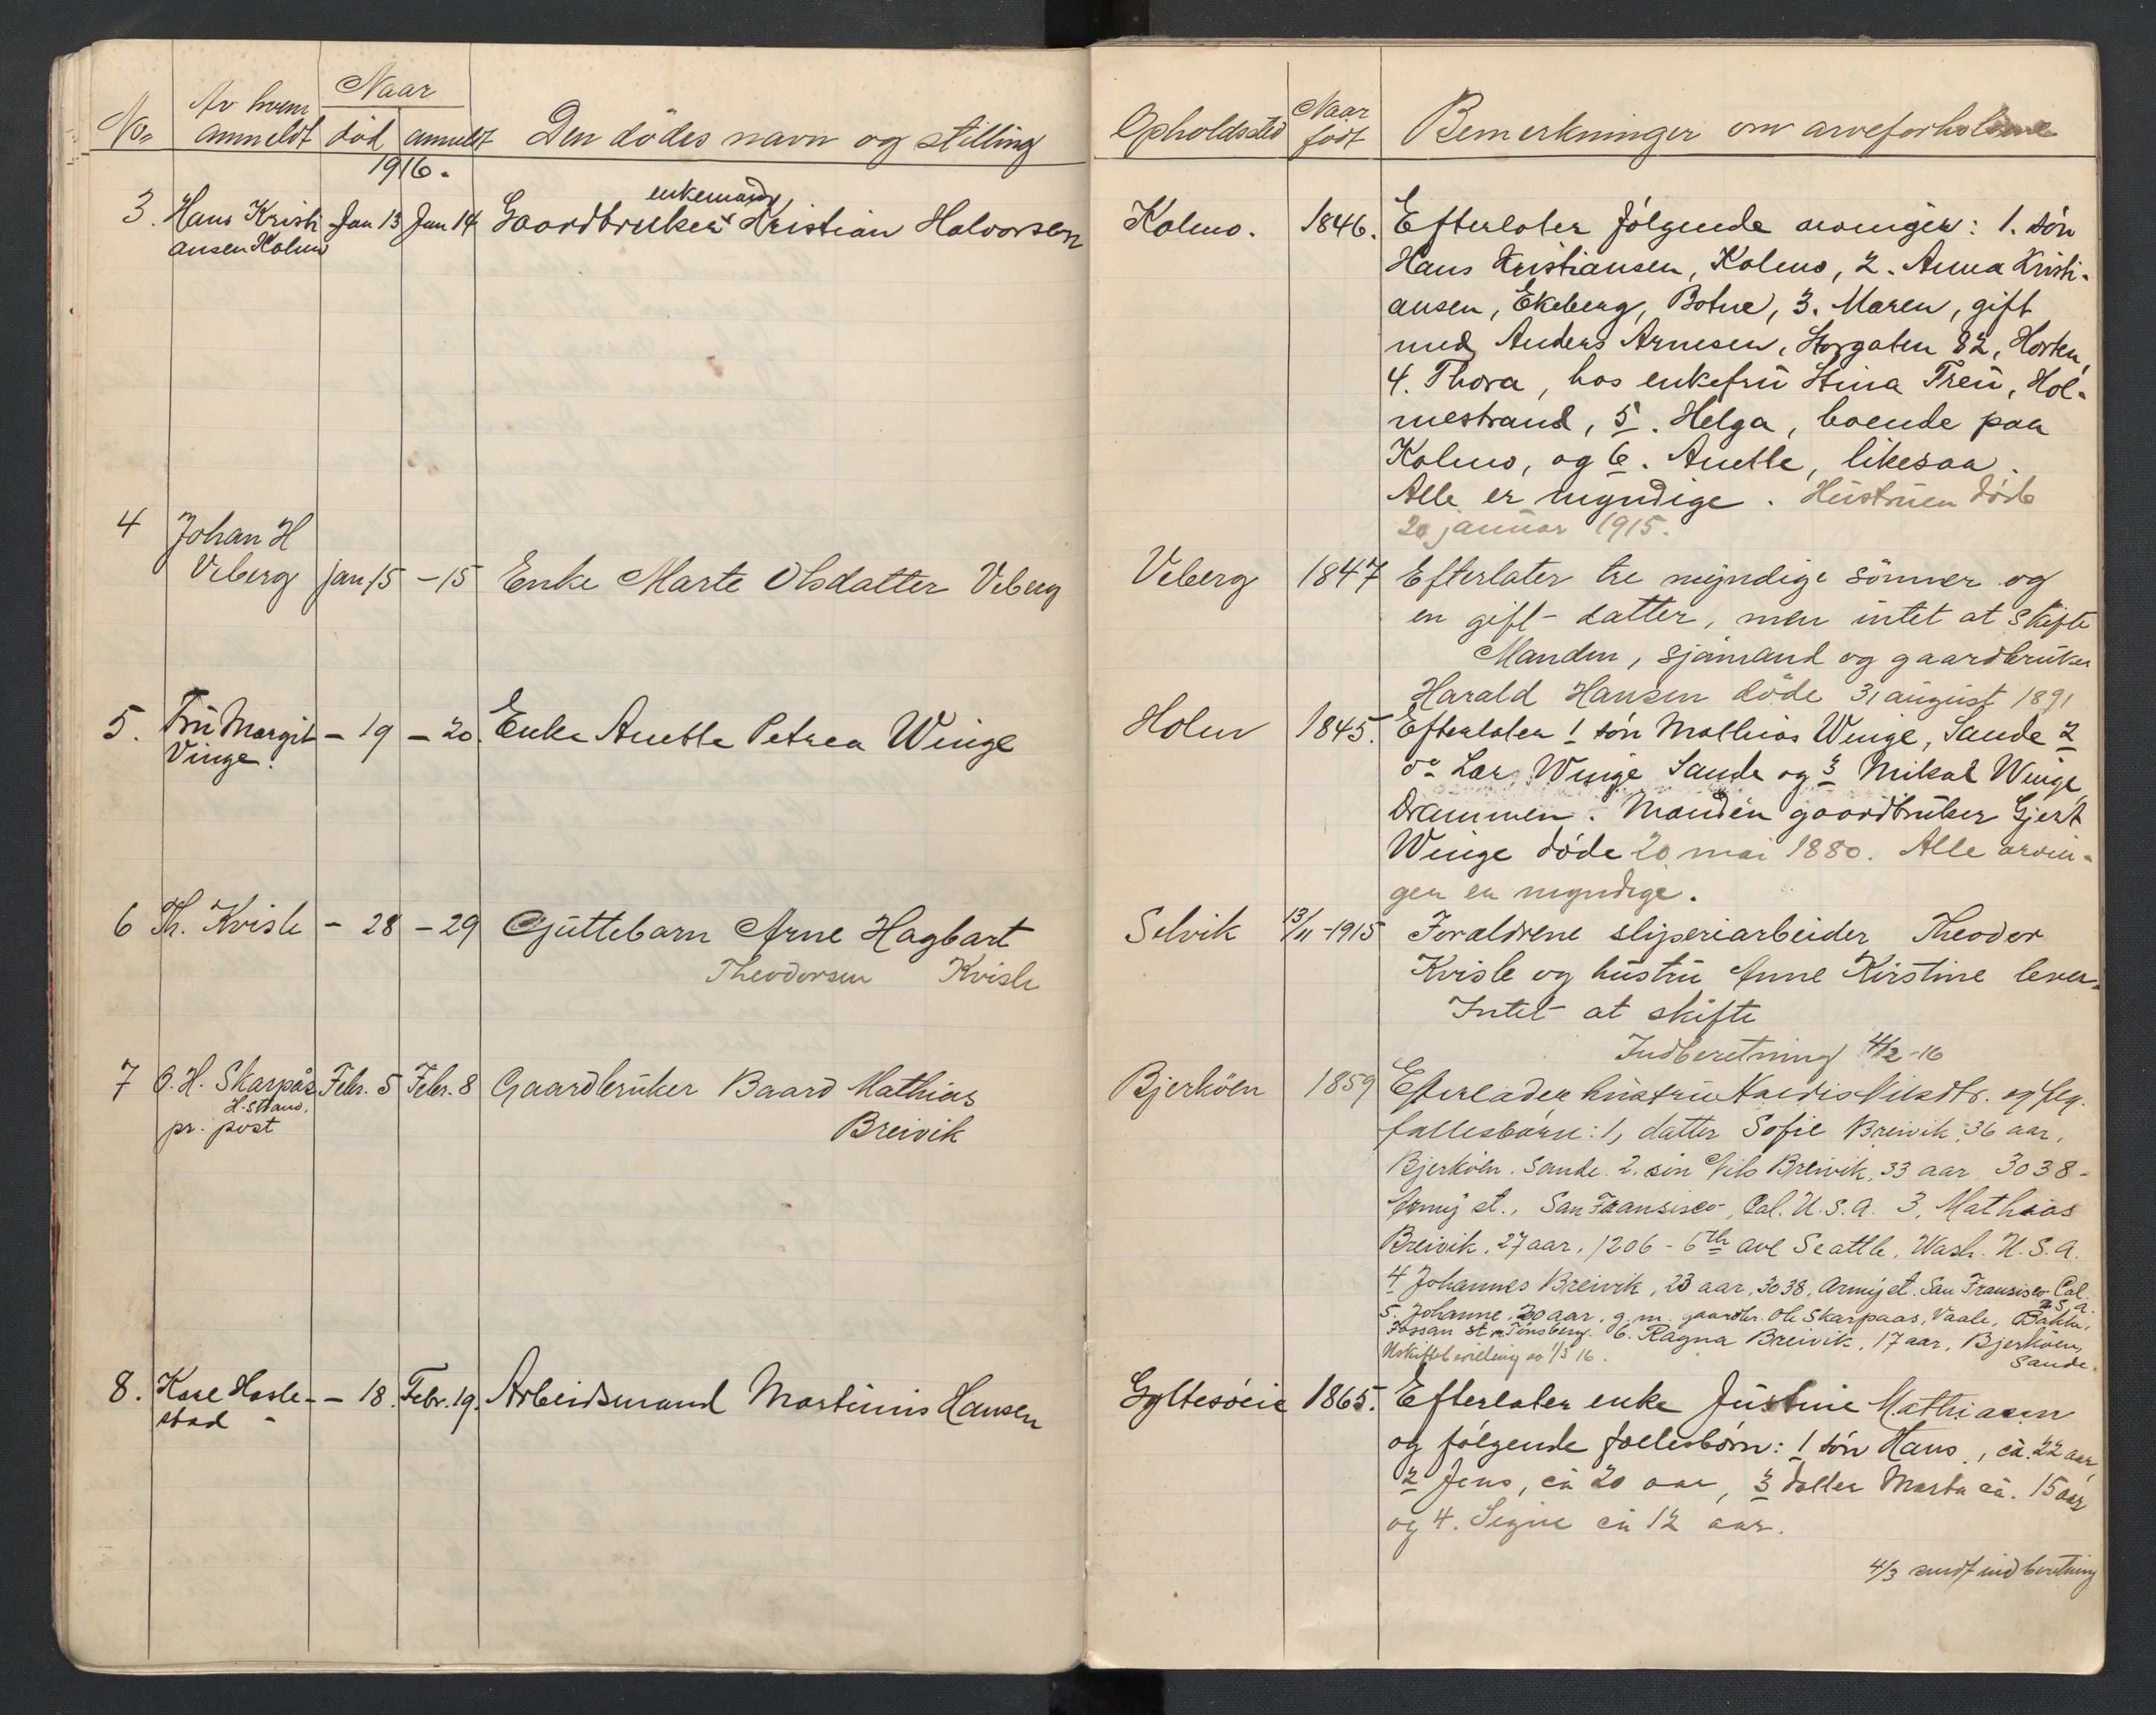 No. Av hvem anmeldt Naar død anmeldt Den dödes navn og stilling Opholdssted Naar født Bemerkninger om arveforholdene
1916.
3. Hans Kristi Jan 13 Jan 14 Gaardbruker enkemand Kristian Halvorsen Kolmo. 1846. Efterlater følgende arvinger: 1. søn
ansen Kolmo
Hans Kristiansen, Kolmo, 2. Anna Kristi-
ansen, Ekeberg, Botne, 3. Maren, gift
med Anders Arnesen, Storgaten 82, Horten,
4. Thora, hos enkefru Stina Treu, Hol-
mestrand, 5. Helga, boende paa
Kolmo, og 6. Anette, likesaa.
Alle er myndige. Hustruen døde
20 januar 1915.
4 Johan H
Veberg jan 15 - 15 Enke Marte Olsdatter Veberg Veberg 1847 Efterlater tre myndige sönner og
en gift datter, men intet at skifte
Manden, sjømand og gaardbruker
Harald Hansen döde 31 august 1891
5. Fru Margit - 19 - 20. Enke Anette Petrea Winge Holm 1845. Efterlater 1 søn Mathias Winge, Sande 2
Vinge.
do Lar. Winge Sande og 3 Mikal Winge,
Drammen. Manden gaardbruker Gjert
Winge døde 20 mai 1880. Alle arvin-
ger er myndige.
6 Th. Kvisle - 28 - 29 Gjuttebarn Arne Hagbart Selvik 13/11-1915 Forældrene sliperiarbeider Theodor
Theodorsen Kvisle
Kvisle og hustru Anne Kirstine lever.
Intet at skifte
Indberetning 4/2-16
7 O. H. Skarpås Febr. 5 Febr. 8 Gaardbruker Baard Mathias Bjerköen 1859 Efterlader hustru Nilsdtr. og flg.
H.strand.
pr. post Breivik
fællesbørn: 1, datter Sofie Breivik, 36 aar,
Bjerköen. Sande. 2. sön Nils Breivik, 33 aar, 3038-
Army st., San Fransisco, Cal. U.S.A. 3, Mathias
Breivik, 27 aar, 1206 - 6th ave Seattle, Wash. U.S.A.
4 Johannes Breivik, 23 aar, 3038, Army st. San Fransisco Cal.
U.S.A.
5. Johanne, 20 aar, g. m. gaardbr. Ole Skarpaas, Vaale, Bakke,
Fossan st. Tönsberg. 6. Ragna Breivik, 17 aar, Bjerköen,
Sande.
Uskiftebevilling av 1/3 16.
8. Kare Hasle- - 18. Febr. 19. Arbeidsmand Martinius Hansen Gyltesøeie 1865. Efterlater enke Justine Mathiasen
stad -
og følgende fællesbørn: 1 søn Hans, ca. 22 aar,
2 Jens, ca 20 aar, 3 datter Marta ca. 15 aar
og 4. Signe ca 12 aar.
4/3 sendt indberetning